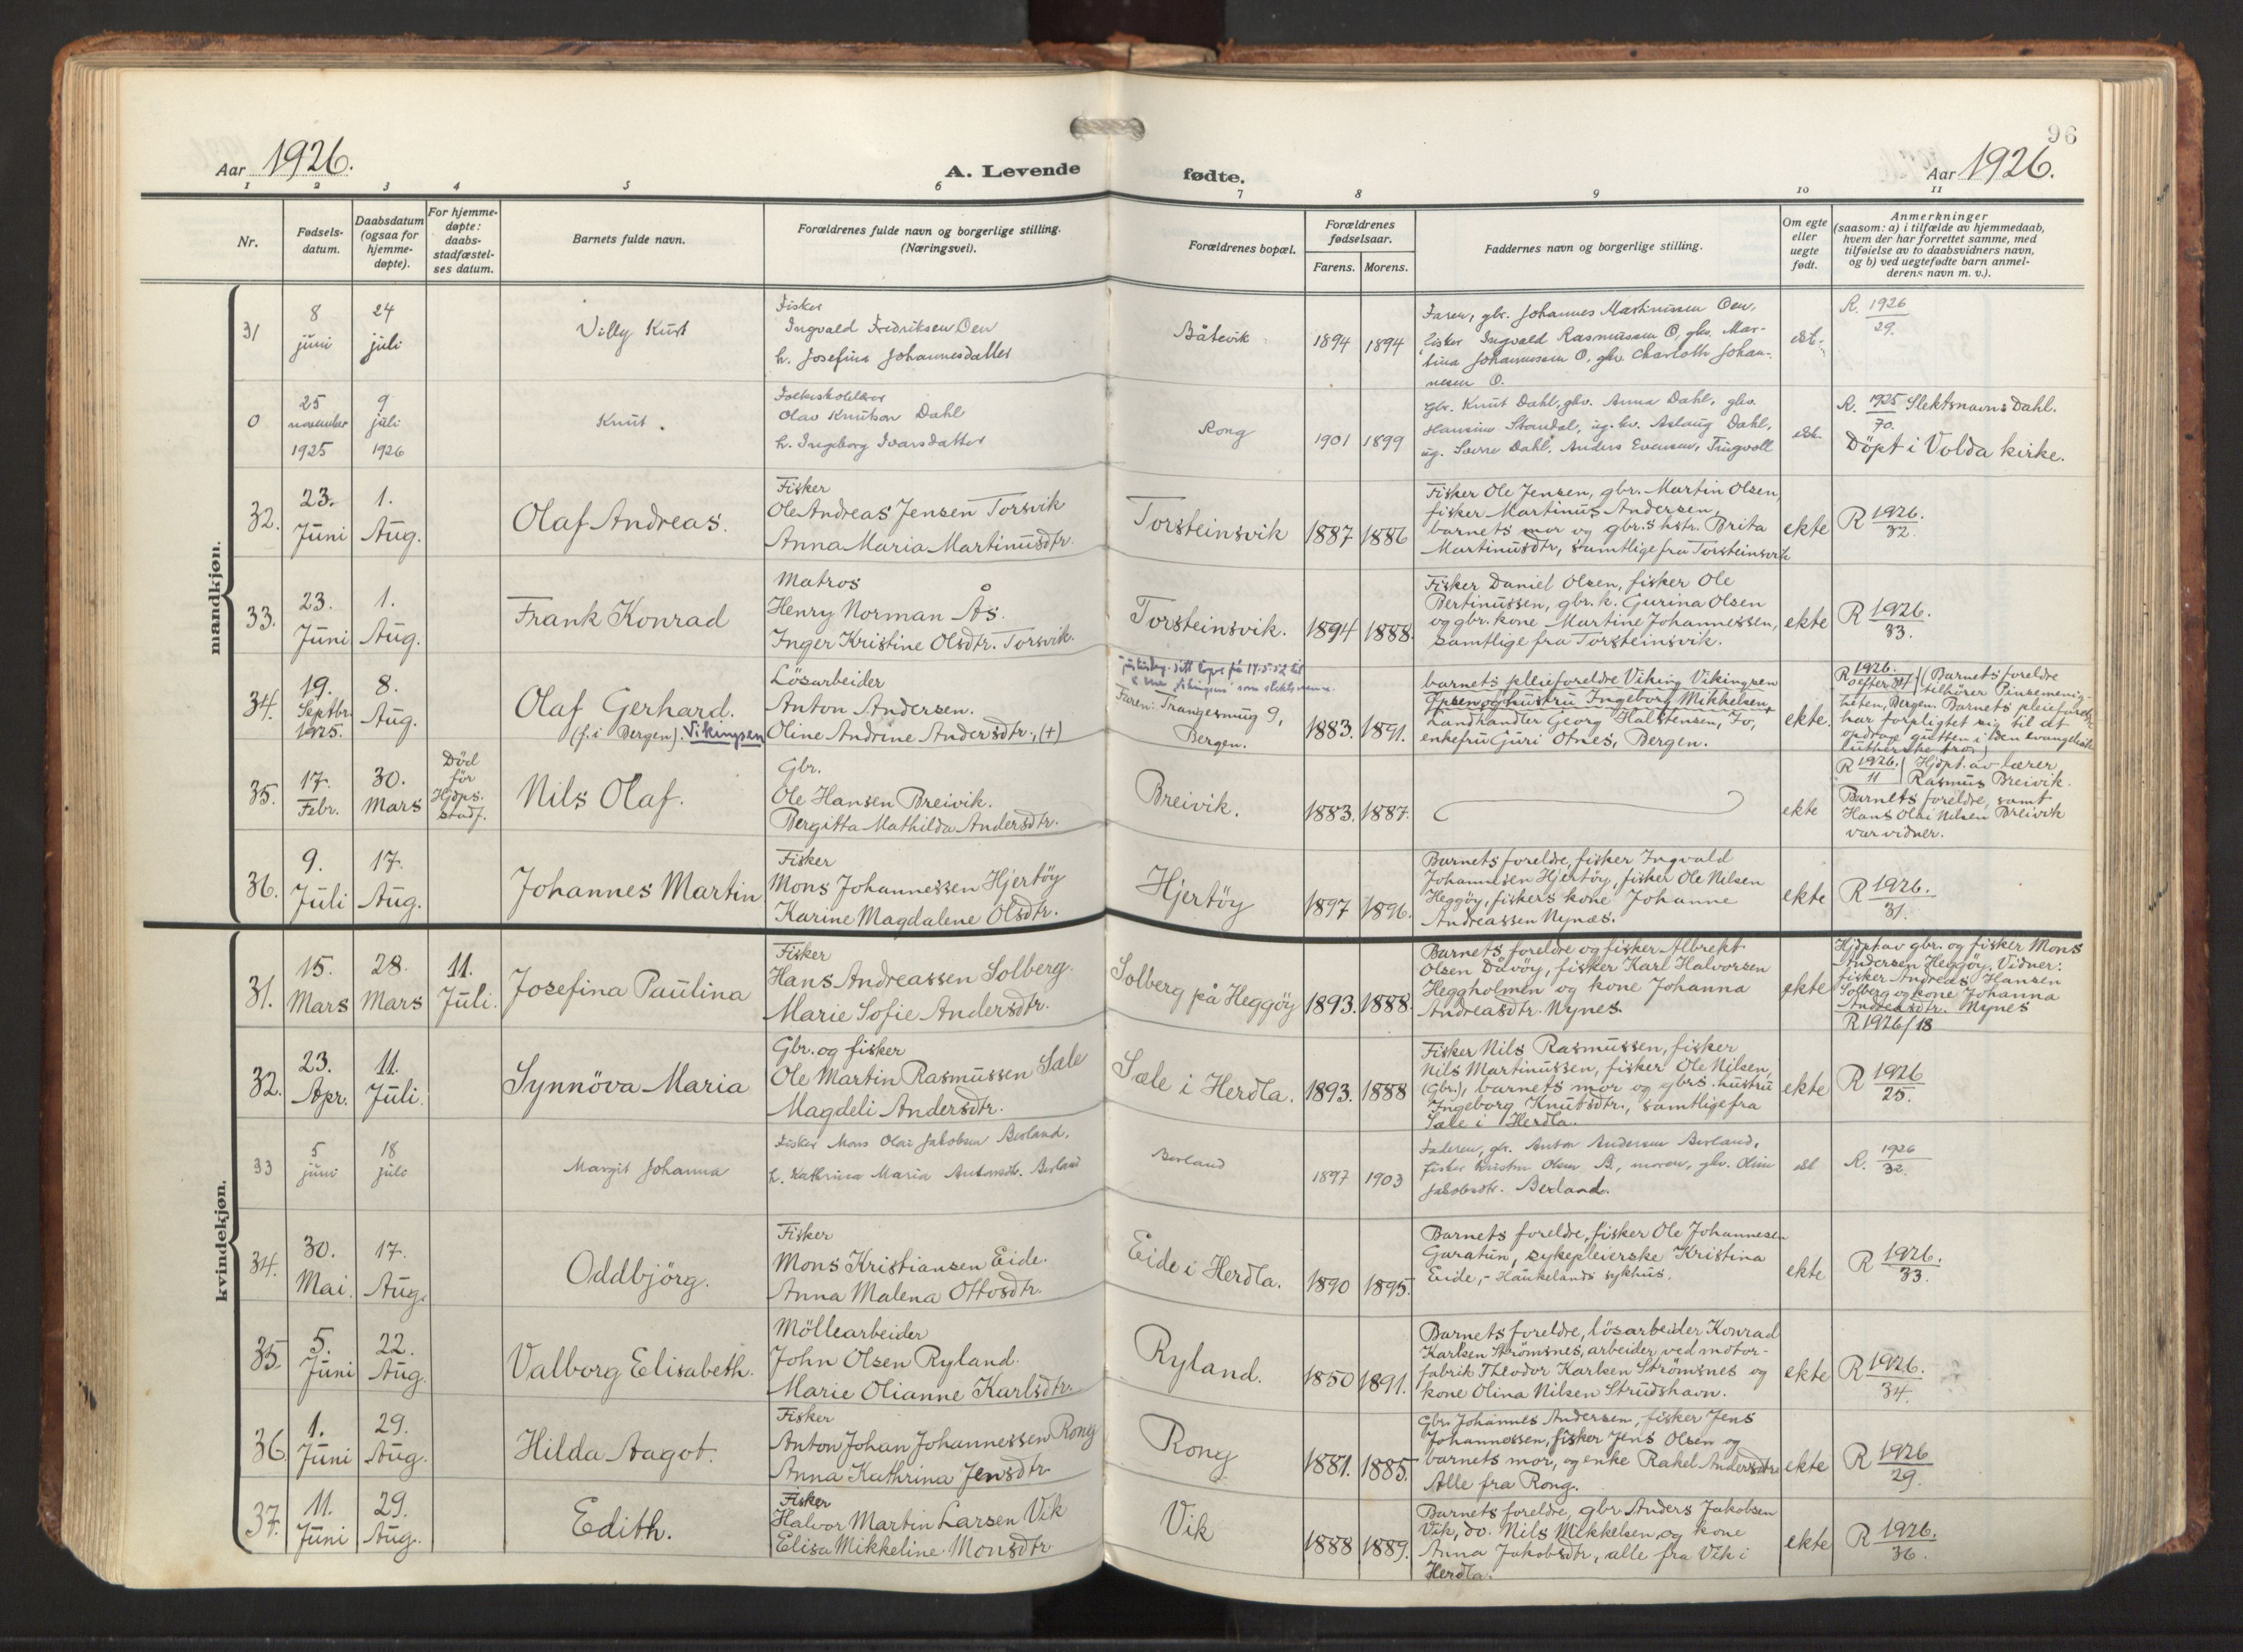 96
Aar 1926.
A. Levende
fødte.
Aar 1926.
1 2 3 4 5 6 7 8 9 10 11
Nr.
Fødsels-
datum.
Daabsdatum
(ogsaa for
hjemme-
døpte).
For hjemme-
døpte:
daabs-
stadfæstel-
ses datum.
Barnets fulde navn.
Forældrenes fulde navn og borgerlige stilling.
(Næringsvei).
Forældrenes bopæl.
Forældrenes
fødselsaar.
Farens. Morens.
Faddernes navn og borgerlige stilling.
Om egte
eller
uegte
født.
Anmerkninger
(saasom: a) i tilfælde av hjemmedaab,
hvem der har forrettet samme, med
tilføielse av to daabsvidners navn,
og b) ved uegtefødte barn anmel-
derens navn m. v.).
mandkjøn.
31
8
juni
24
juli
Villy Kurt
Fisker
Ingvald Fredriksen Oen
h. Josefine Johannesdatter
Båtevik
1894 1894
Faren, gbr. Johannes Martinussen Oen,
fisker Ingvald Rasmussen O, ghv. Mar-
tina Johannessen O, ghv. Charlotte Johan-
nesen O.
ekt.
R. 1926
29.
0
25
november
1925
9
juli
1926
Knut.
Folkeskolelærer
Olav Knutson Dahl
h. Ingeborg Ivarsdatter
Rong
1901 1899
Gbr. Knut Dahl, ghv. Anna Dahl, ghv.
Hansine Standal, ug. kv. Aslaug Dahl,
ug. Sverre Dahl, Anders Evensen, Tingvoll
ekt.
R. 1925 Slektsnavn: Dahl.
70.
Döpt i Volda kirke.
32.
23.
Juni
1.
Aug.
Olaf Andreas.
Fisker
Ole Andreas Jensen Torsvik
Anna Maria Martinusdtr.
Torsteinsvik
1887 1886
Fisker Ole Jensen, gbr. Martin Olsen,
fisker Martinus Andersen,
barnets mor og gbr.s hstr. Brita
Martinusdtr, samtlige fra Torsteinsvik
ekte
R 1926.
32.
33.
23.
Juni
1.
Aug.
Frank Konrad
Matros
Henry Norman Ås.
Inger Kristine Olsdtr. Torsvik.
Torsteinsvik.
1894 1888.
Fisker Daniel Olsen, fisker Ole
Bertinussen, gbr. k. Gurina Olsen
og gbr. kone Martine Johannessen,
samtlige fra Torsteinsvik.
ekte
R 1926.
33.
34.
19.
Septbr.
1925.
8.
Aug.
Olaf Gerhard.
(f. i Bergen). Vikingsen
Lösarbeider
Anton Andersen.
Oline Andrine Andersdtr., (+)
som slektsnavn.
Faren: Trangesmug 9,
Bergen.
1883. 1891.
barnets pleieforeldre Viking Vikingsen
og hustru Ingeborg Mikkelsen,
Landhandler Georg Halstensen, Io,
enkefru Guri Otnes, Bergen.
ekte.
R 1926. (Barnets foreldre
efter 34 tilhører Pinsemenig-
heten, Bergen. Barnets pleieforeldre
har forpligtet sig til at
opdra gutten i den evangelisk
lutherske tro.)
35.
17.
Febr.
30.
Mars
Död
för
Hjdps.
stadf.
Nils Olaf.
Gbr.
Ole Hansen Breivik.
Bergitta Mathilda Andersdtr.
Breivik.
1883. 1887.
ekte
R 1926. Hjdpt. av lærer
11 Rasmus Breivik.
Barnets foreldre, samt
Hans Olai Nilsen Breivik
var vidner.
36.
9.
Juli
17.
Aug.
Johannes Martin
Fisker
Mons Johannessen Hjertöy
Karine Magdalene Olsdtr.
Hjertöy
1897 1896.
Barnets foreldre, fisker Ingvald
Johannesen Hjertöy, fisker Ole Nilsen
Heggöy, fiskers kone Johanne
Andreassen Nynæs.
ekte
R 1926.
31.
kvindekjøn.
31.
15.
Mars
28.
Mars
11.
Juli.
Josefina Paulina
Fisker
Hans Andreassen Solberg.
Marie Sofie Andersdtr.
Solberg på Heggöy
1893. 1888.
Barnets foreldre og fisker Albrekt
Olsen Dåvöy, fisker Karl Halvorsen
Heggholmen og kone Johanna
Andreasdtr. Nynes.
ekte
Hjdpt. av gbr. og fisker Mons
Andersen Heggöy. Vidner:
fisker Andreas Hansen
Solberg og kone Johanna
Andreasdtr. Nynes
R 1926/18
32.
23.
Apr.
11.
Juli.
Synnöva Maria
Gbr. og fisker
Ole Martin Rasmussen Sæle
Magdeli Andersdtr.
Sæle i Herdla.
1893. 1888
Fisker Nils Rasmussen, fisker
Nils Martinussen, fisker Ole Nilsen,
(gbr.), barnets mor og gbrs. hustru
Ingeborg Knutsdtr., samtlige fra
Sæle i Herdla.
ekte
R 1926
25.
33
5
juni
18
juli
Margit Johanna
Fisker Mons Olai Jakobsen Berland,
h. Kathrina Maria Antonsdtr. Berland
Berland
1897 1903
Faderen, gbr. Anton Andersen Berland,
fisker Kristen Olsen B, moren, ghv. Oline
Jakobsdtr. Berland.
ekt
R. 1926
32.
34.
30.
Mai.
17.
Aug.
Oddbjörg.
Fisker
Mons Kristiansen Eide.
Anna Malena Ottosdtr.
Eide i Herdla.
1890 1895.
Barnets foreldre, fisker Ole Johannesen
Garatun, sykepleierske Kristina
Eide, - Haukelands sykhus.
ekte
R 1926.
33.
35.
5.
Juni
22.
Aug.
Valborg Elisabeth.
Möllearbeider
John Olsen Ryland.
Marie Olianne Karlsdtr.
Ryland.
1850 1891.
Barnets foreldre, lösarbeider Konrad
Karlsen Strömsnes, arbeider ved motor-
fabrik Theodor Karlsen Strömsnes og
kone Olina Nilsen Strudshavn.
ekte
R 1926.
34.
36
1.
Juni
29.
Aug.
Hilda Aagot.
Fisker
Anton Johan Johannessen Rong
Anna Kathrina Jensdtr.
Rong
1881. 1885.
Gbr. Johannes Andersen, fisker Jens
Johannessen, fisker Jens Olsen og
barnets mor, og enke Rakel Andersdtr.
Alle fra Rong.
ekte
R 1926
29.
37.
11.
Juni
29.
Aug.
Edith.
Fisker
Halvor Martin Larsen Vik
Elisa Mikkeline Monsdtr
Vik
1888 1889.
Barnets foreldre, gbr Anders Jakobsen
Vik, do. Nils Mikkelsen, og kone
Anna Jakobsdtr, alle fra Vik i
Herdla.
ekte
R 1926.
36.